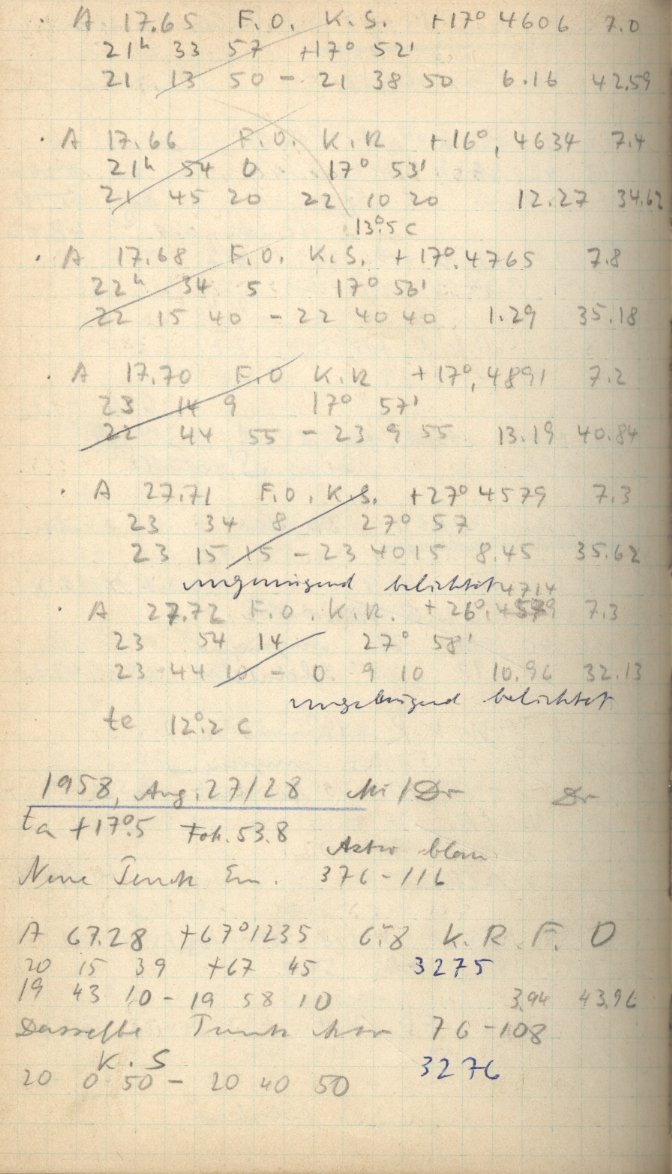 A 17.65 F.O. K.S. +17° 4606 7.0
21h 33 57 +17° 52'
21 13 50 - 21 38 50 6.16 42.59
A 17.66 F.O. K.R +16°, 4634 7.4
21h 54 0 17° 53'
21 45 20 22 10 20 12.27 34.62
13°.5 C
A 17.68 F.O. K.S. +17°.4765 7.8
22h 34 5 17° 56'
22 15 40 - 22 40 40 1.29 35.18
A 17.70 F.O K.R +17°, 4891 7.2
23 14 9 17° 57'
22 44 55 - 23 9 55 13.19 40.84
A 27.71 F.O. K.S. +27° 4579 7.3
23 34 8 27° 57
23 15 15 - 23 40 15 8.45 35.62
ungenügend belichtet
4714
A 27.72 F.O. K.R. +26°. 7.3
23 54 14 27° 58'
23 44 10 - 0 9 10 10.96 32.13
ungenügend belichtet
te 12°.2 C
1958, Aug. 27/28 Mi/Dr Dr
ta +17°.5 Fok. 53.8
Astro blau
Neue Em. 376-116
A 67.28 +67°1235 6.8 K.R. F. O
20 15 39 +67 45 3275
19 43 10 - 19 58 10 3.94 43.96
Dasselbe 76-108
K.S
20 0 50 - 20 40 50 3276